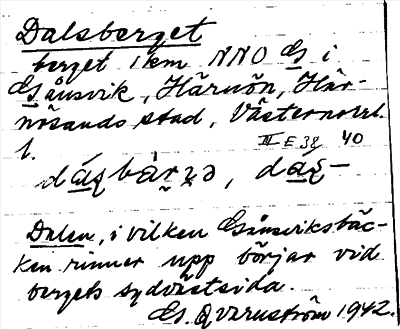 Dalsberget
berget 1 km NNO G i
Gånsvik, Härnön, Här-
nösands stad, Västernorrl.
l. III E 38 40
Dalen, i vilken Gånsviksbäc-
ken rinner upp börjar vid
bergets sydvästsida.
G. Qvarnström 1942.